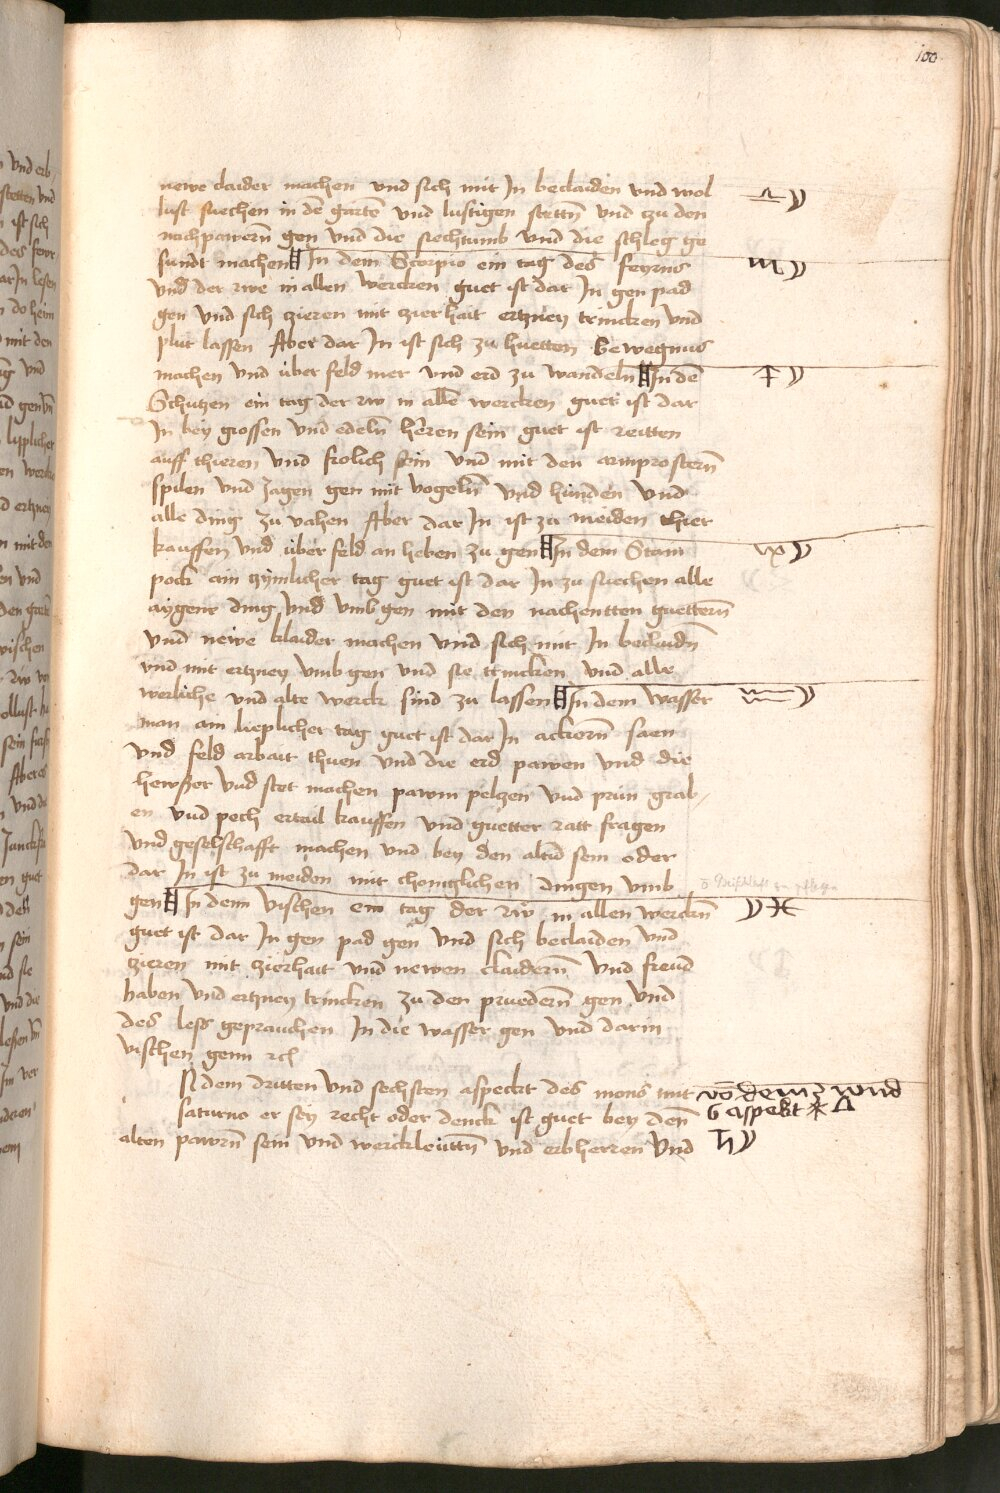 100
newe claider machen vnd sich mit In beclaiden vnd wol
lust suechen in dē gartē vnd lustigen stettn̄ vnd zu den
nachpawern̄ gen vnd die siechtumb vnd die schleg ge
sundt machen In dem Scorpio ein tag des feyrns
vnd der rwe in allen wercken guet ist dar In gen pad
gen vnd sich zieren mit zierhait ertzney trincken vnd
plut lassen Aber dar In ist sich zu huetten bewegnus
machen vnd über feld mer vnd erd zu wandeln̄ In dē
Schutzen ein tag der rw in allē wercken guet ist dar
In bey grossen vnd edeln̄ herren sein guet ist reitten
auff thieren vnd frolich sein vnd mit den armprostern̄
spilen vnd Jagen gen mit vogeln̄ vnd hunden vnd
alle ding zu vahen Aber dar In ist zu meiden thier
kauffen vnd über feld an heben zu gen In dem Stain
pock ain zymlicher tag guet ist dar In zu suechen alle
aygene ding vnd vmb gen mit den nachentten guettern̄
vnd newe klaider machen vnd sich mit In beclaidn̄
vnd mit ertzney vmb gen vnd sie trincken vnd alle
werliche vnd alte werck sind zu lassen In dem wasser
man ain lieplicher tag guet ist dar In ackern̄ saen
vnd feld arbait thuen vnd die erd pawen vnd die
hewser vnd stet machen pawm pelzen vnd prun grab
en vnd pech erteil kauffen vnd guetter ratt fragen
vnd geselschafft machen vnd bey den altn̄ sein oder
dar In ist zu meiden mit choniglichen dingen vmb
gen In dem vischen ein tag der rw in allen werckn̄
guet ist dar In gen pad gen vnd sich beclaiden vnd
zieren mit zierhait vnd newen claidern̄ vnd freud
haben vnd ertzney trincken zu den pruedern̄ gen vnd
des less geprauchen In die wasser gen vnd darin
vischen genn ꝛc
N dem dritten vnd sechsten aspeckt des mons mit
saturno er sey recht oder denck ist guet bey den̄
alten pawrn̄ sein vnd werckleuttn̄ vnd erbherren vnd
♎ ☽
♏ ☽
♐ ☽
♑ ☽
♒ ☽
☽ ♓
vō dem 3 vnd
6 aspekt ⚹ △
♄ ☽